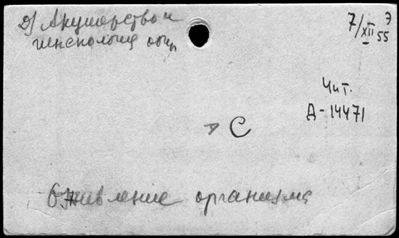 2) Акушерство и
гинекология общ.
7/XII 55
Э
Чит.
Д-14471
С
Оживление организма